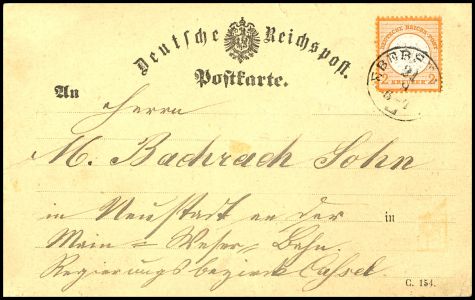 Deutsche Reichspost.
Postkarte.
DEUTSCHE REICHS-POST
2 KREUZER 2
An
Herrn
M. Bachrach Sohn
in Neustadt an der
in
Main = Weser = Bahn.
Regierungsbezirk Cassel.
C. 154.